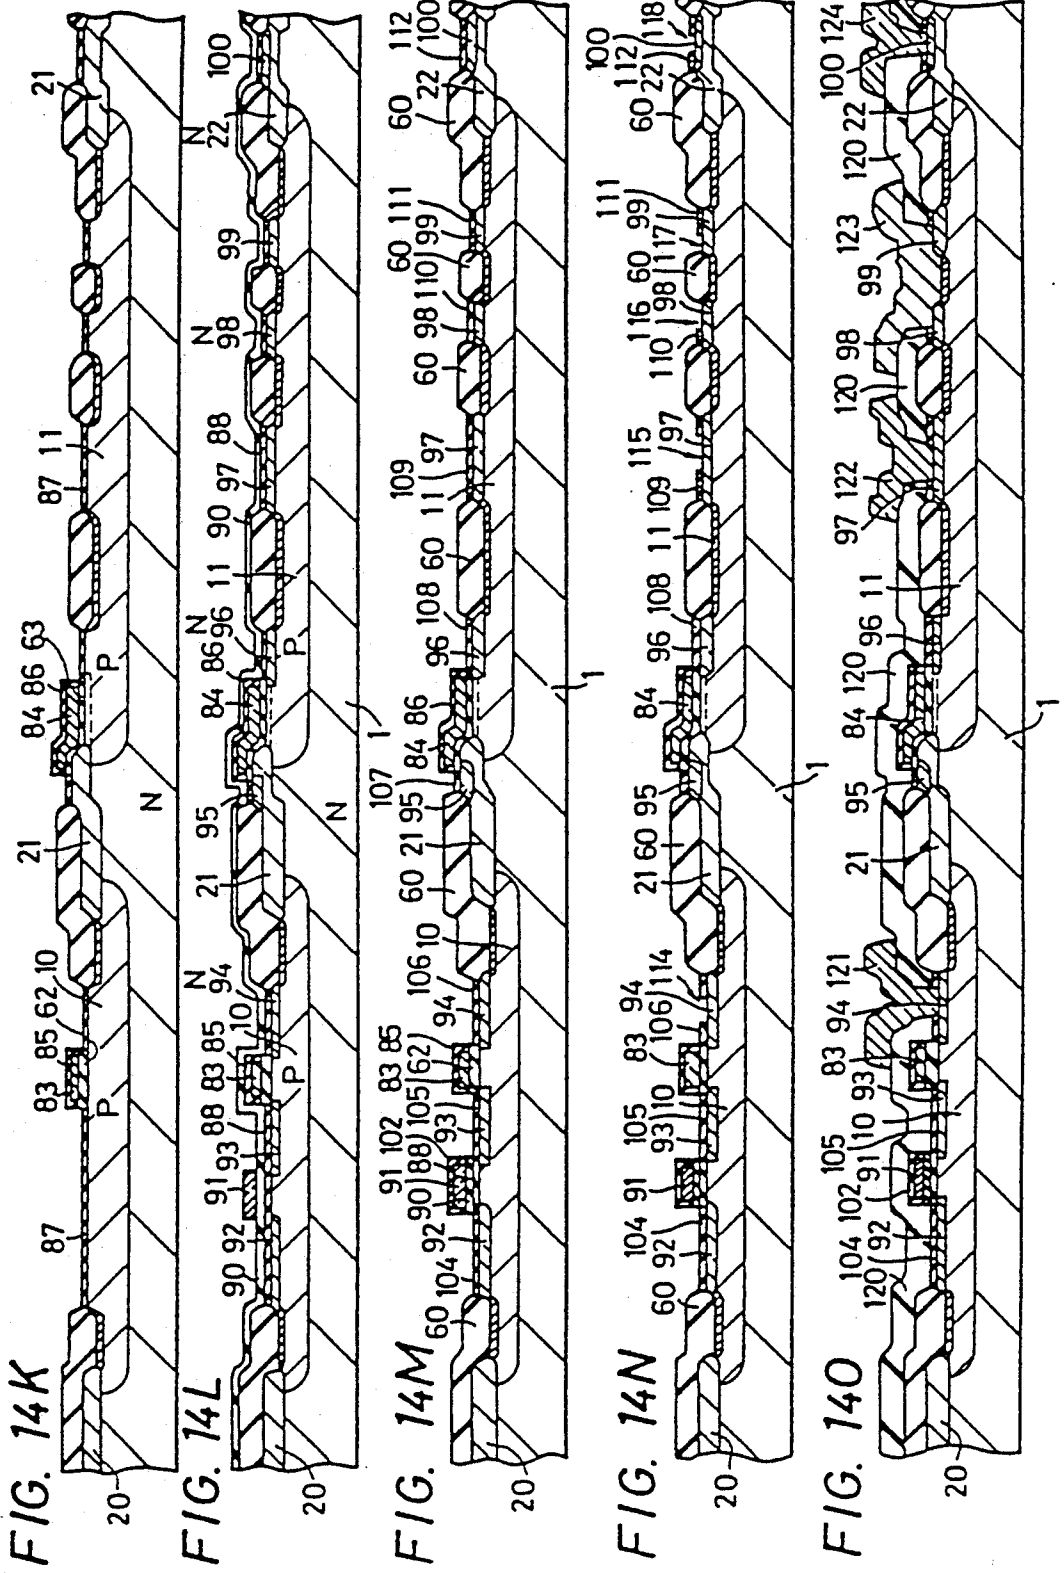 FIG. 14K
20
87
P
83 85 62 10
21
N
84 86 63
P
87 11
21
FIG. 14L
20
90 92 91 93 88 83 85 10 94 N
P
21
95
N
1
84 86 96 N
P
11
90 97 88
98 N
99
22 N
100
FIG. 14M
20
60
104 92 90 88 91 102
93 105 62 83 85
94 106
10
60 21 95 107
84 86
1
96 108
60
11
109 97
60 98 110 60 99 111
60 22 112 100
FIG. 14N
20
60 92 104
91
93 105 10
83
106 94 114
21 60 95
84
1
96 108
11
109 97 115
110 116 98 60 117 99 111
60 22 112 100 118
FIG. 14O
20
120 104 92 102 91 105 10 93 83
94 121
21
95
84 120
1
96 11
97 122
120 98
99 123
120 22 100 124